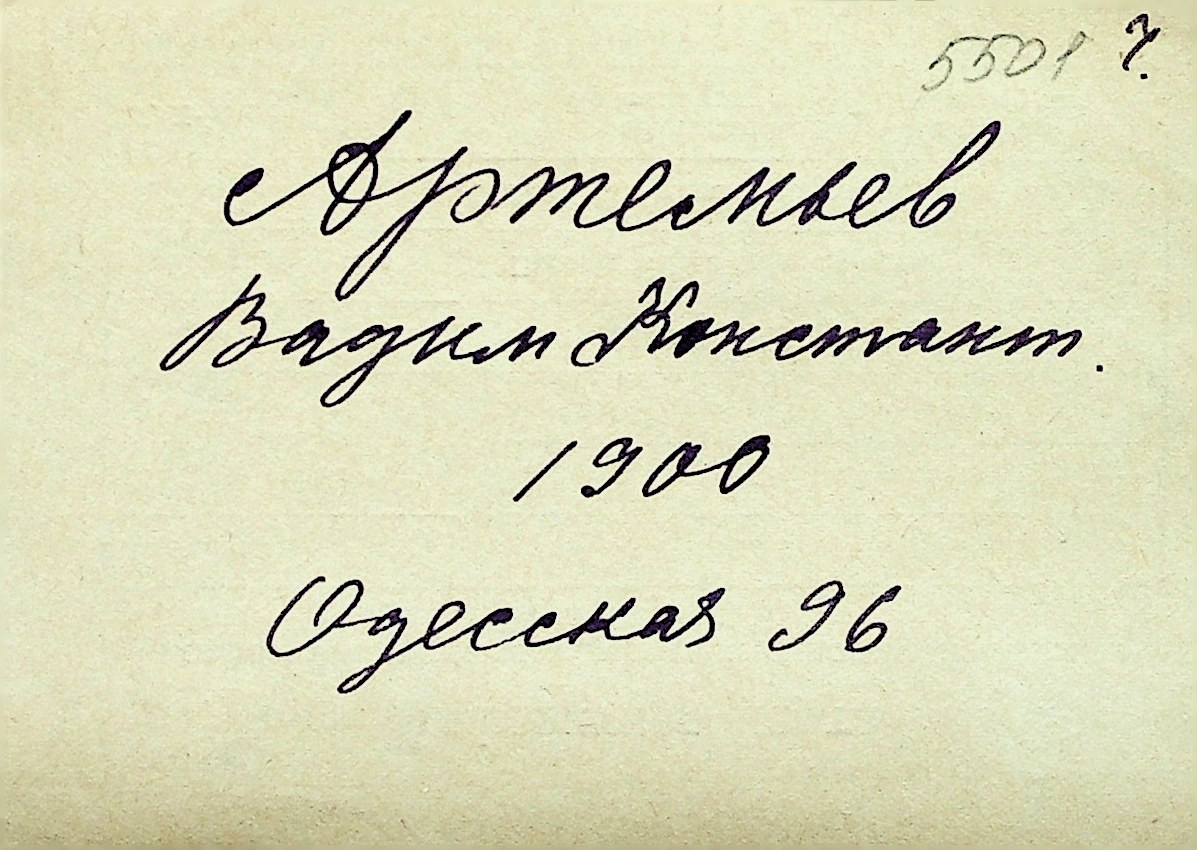 5501 ?
Артемьев
Вадим Констант.
1900
Одесская 96